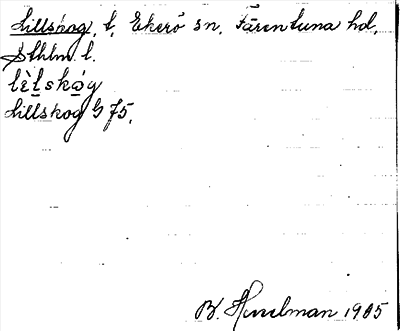 Lillskog, t, Ekerö sn, Färentuna hd,
Sthlm l.
lìlskòg
Lillskog G 75.
B. Hesselman 1905